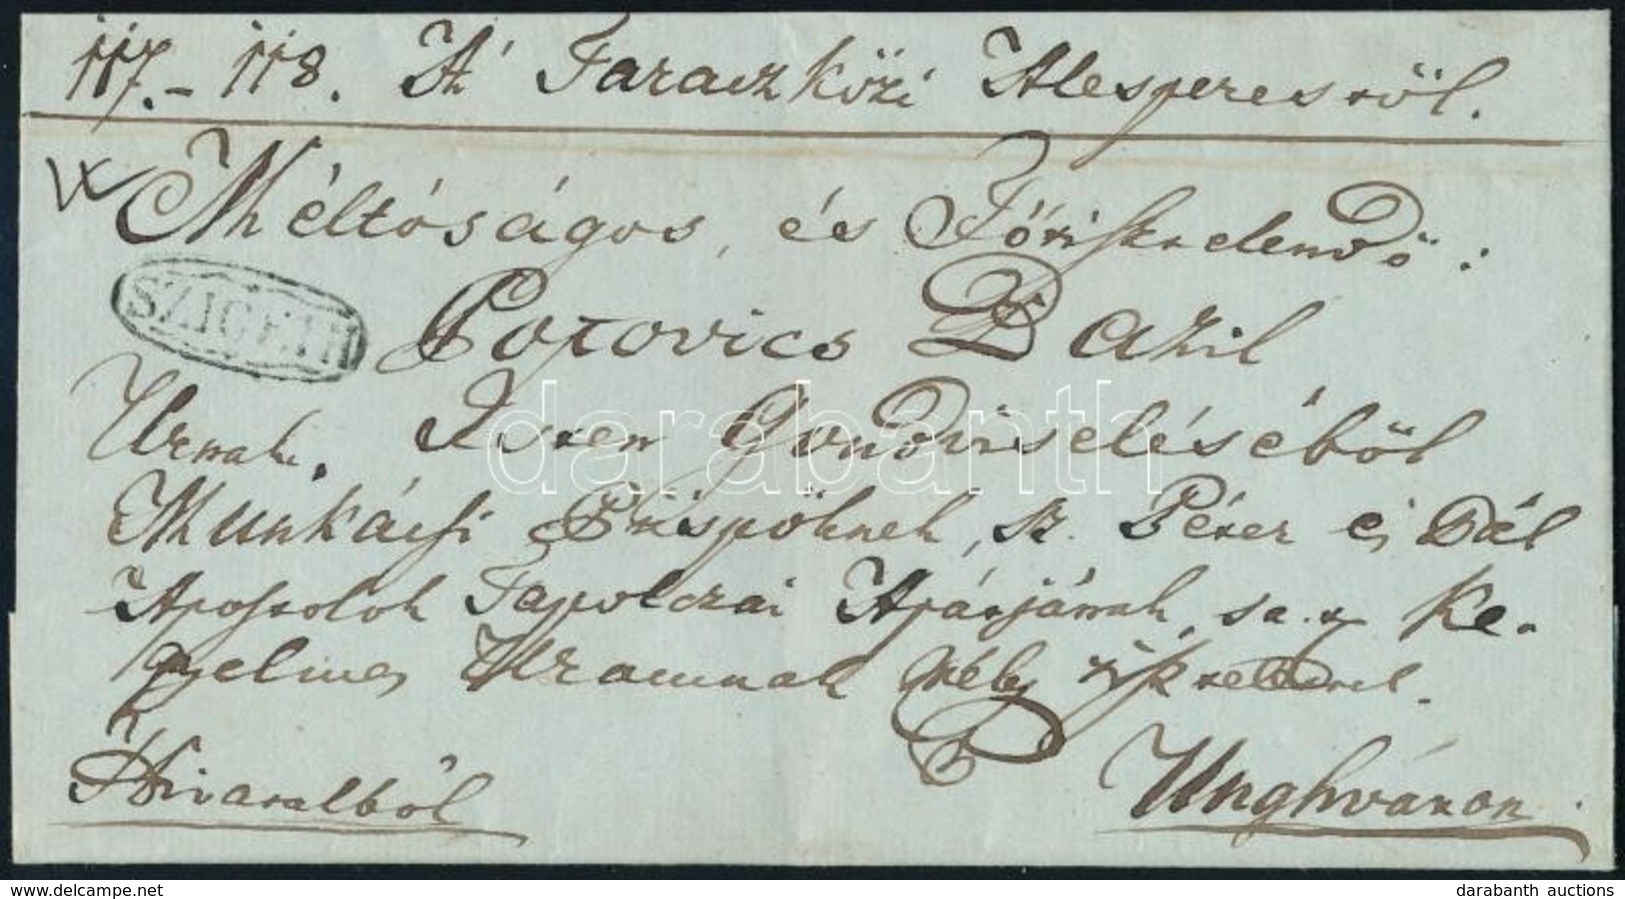 117.–118. A' Taraczközi Alesperestöl.
Méltóságos, és Főtisztelendő:
SZIGETH
Popovics Bazil
Urnak. Isten Gondviseléséböl
Munkácsi Püspöknek, Sz. Péter és Pál
Apostolok Tapolczai Apátjának, sa.t. Ke-
gyelmes Uramnak mély tisztelettel.
Hivatalból
Unghváron
darabanth
darabanth auctions